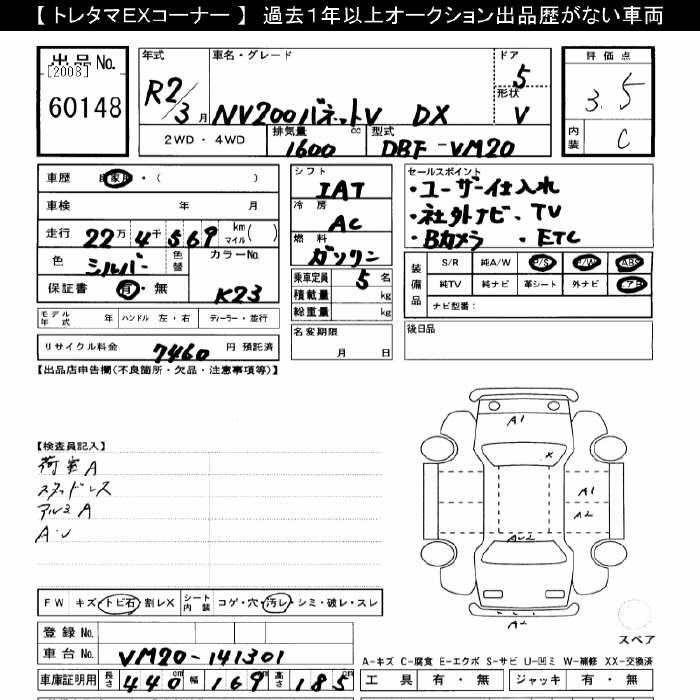 【 トレタマEXコーナー 】 過去1年以上オークション出品歴がない車両
出品 No.
[2008]
60148
年式
R2/3 月
車名・グレード
NV200バネットV DX
ドア
5
形状
V
2WD ・ 4WD
排気量
1600 cc
型式
DBF-VM20
評価点
3.5
内装
C
車歴 自家用 ・( )
車検 年 月
走行 22万4千569 km マイル ( )
色 シルバー 色替
カラーNo.
K23
保証書 有・無
モデル年式 年 ハンドル 左・右 ディーラー・並行
リサイクル料金 7460 円 預託済
シフト
IAT
冷房
AC
燃料
ガソリン
乗車定員 5 名
積載量 kg
総重量 kg
名変期限
月 日
セールスポイント
・ユーザー仕入れ
・社外ナビ、TV
・Bカメラ ・ETC
装備品
S/R 純A/W P/S P/W ABS
純TV 純ナビ 革シート 外ナビ エアB
ナビ型番:
後日品
【出品店申告欄(不良箇所・欠品・注意事項等)】
【検査員記入】
荷室A
スタッドレス
アルミA
A・U
A1
X
A1
A2
AU2
A2
スペア
FW キズ・トビ石・割レX シート内装 コゲ・穴・汚レ・シミ・破レ・スレ
登録 No.
車台 No. VM20-141301
車庫証明用 長さ 440 cm 幅 169 cm 高さ 185 cm
A-キズ C-腐食 E-エクボ S-サビ U-凹ミ W-補修 XX-交換済
工具 有・無 ジャッキ 有・無